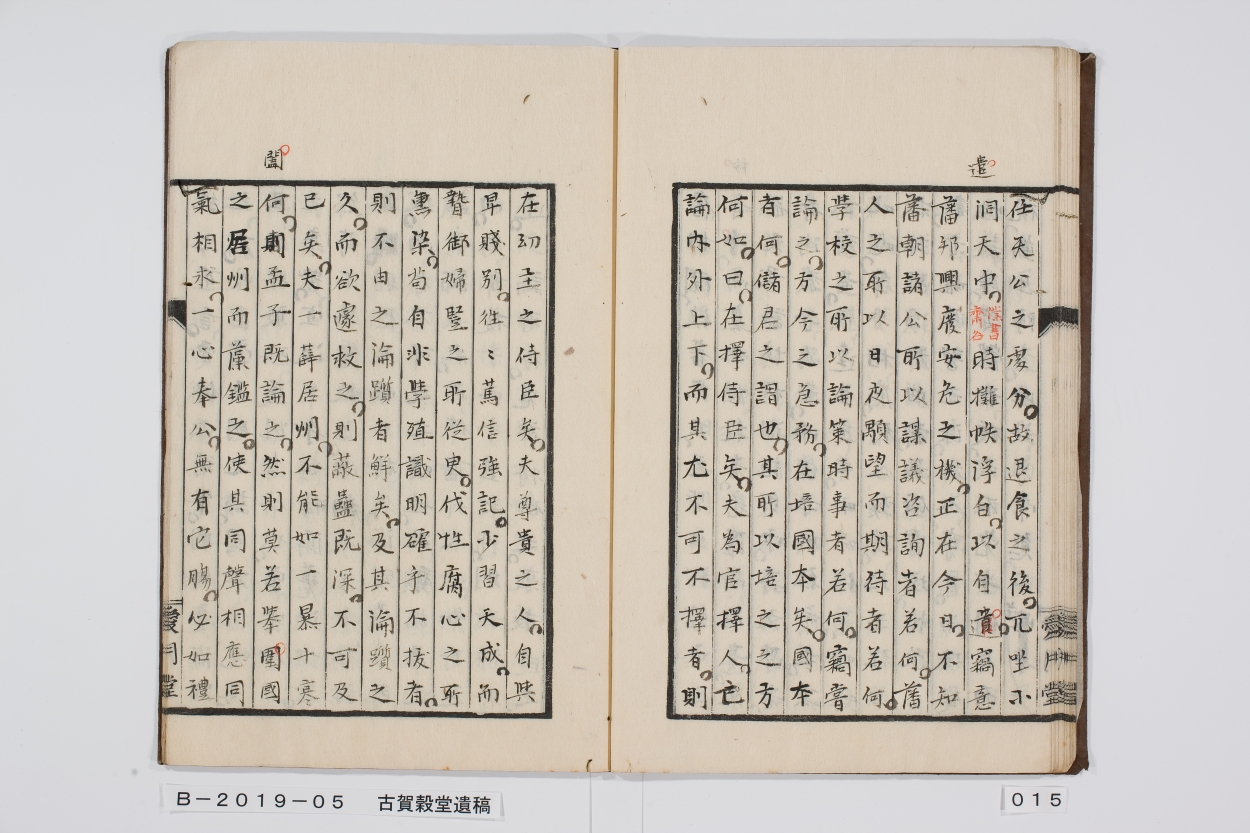 遣
任天公之処分故退食之後兀坐小
洞天中時攤帙浮白以自遣竊意
藩邦興廃安危之機正在今日不知
藩朝諸公所以謀議咨詢者若何旧
人之所以日夜顒望而期待者若何
学校之所以論策時事者若何竊嘗
論之方今之急務在培国本矣国本
者何儲君之謂也其所以培之之方
何如曰在擇侍臣矣夫為官擇人亡
論内外上下而其尤不可不擇者則
在幼主之侍臣矣夫尊貴之人自与
卑賤別往〻篤信強記少習天成而
暬御婦豎之所從臾伐性腐心之所
薫染苟自非学殖識明確乎不拔者
則不由之淪躓者鮮矣及其淪躓之
久而欲遽救之則蔽蠱既深不可及
已矣夫一薛居州不能如一暴十寒
何則孟子既論之然則莫若挙闔国
之居州而薫鑑之使其同聲相應同
氣相求一心奉公無有它膓必如禮
闔
愛月堂
愛月堂
B－2019－05　古賀穀堂遺稿
015